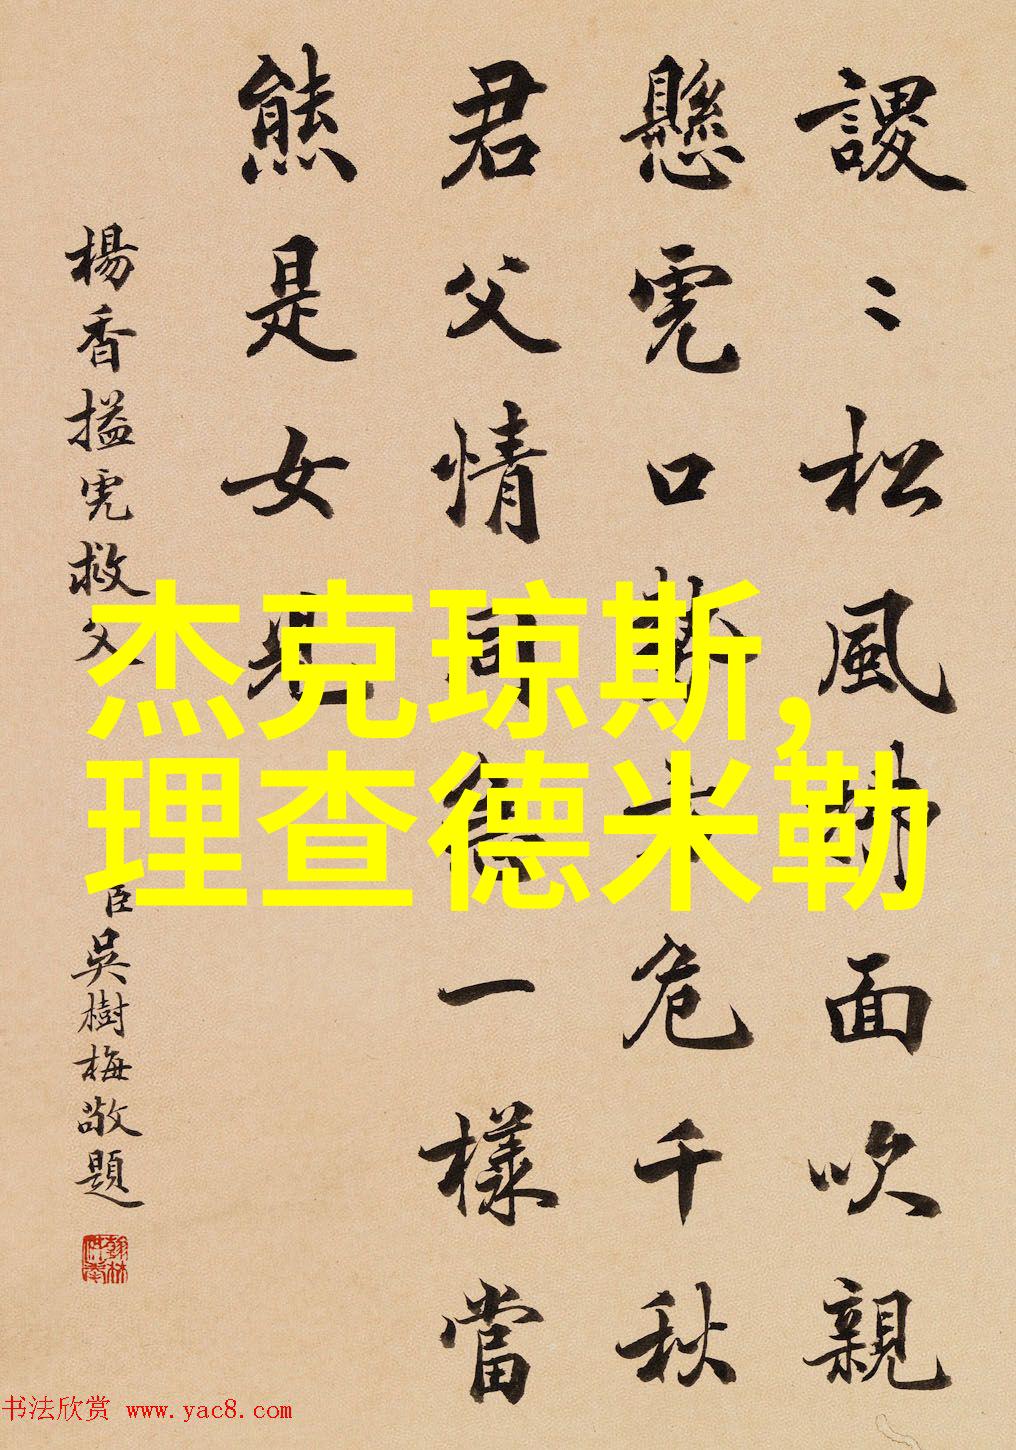 謖〻松風面吹親
懸虎口危千秋
君父情同一樣當
熊是女
楊香搤虎救父
臣吳樹梅敬題
翰林供奉
杰克琼斯,
理查德米勒
书法欣赏 www.yac8.com